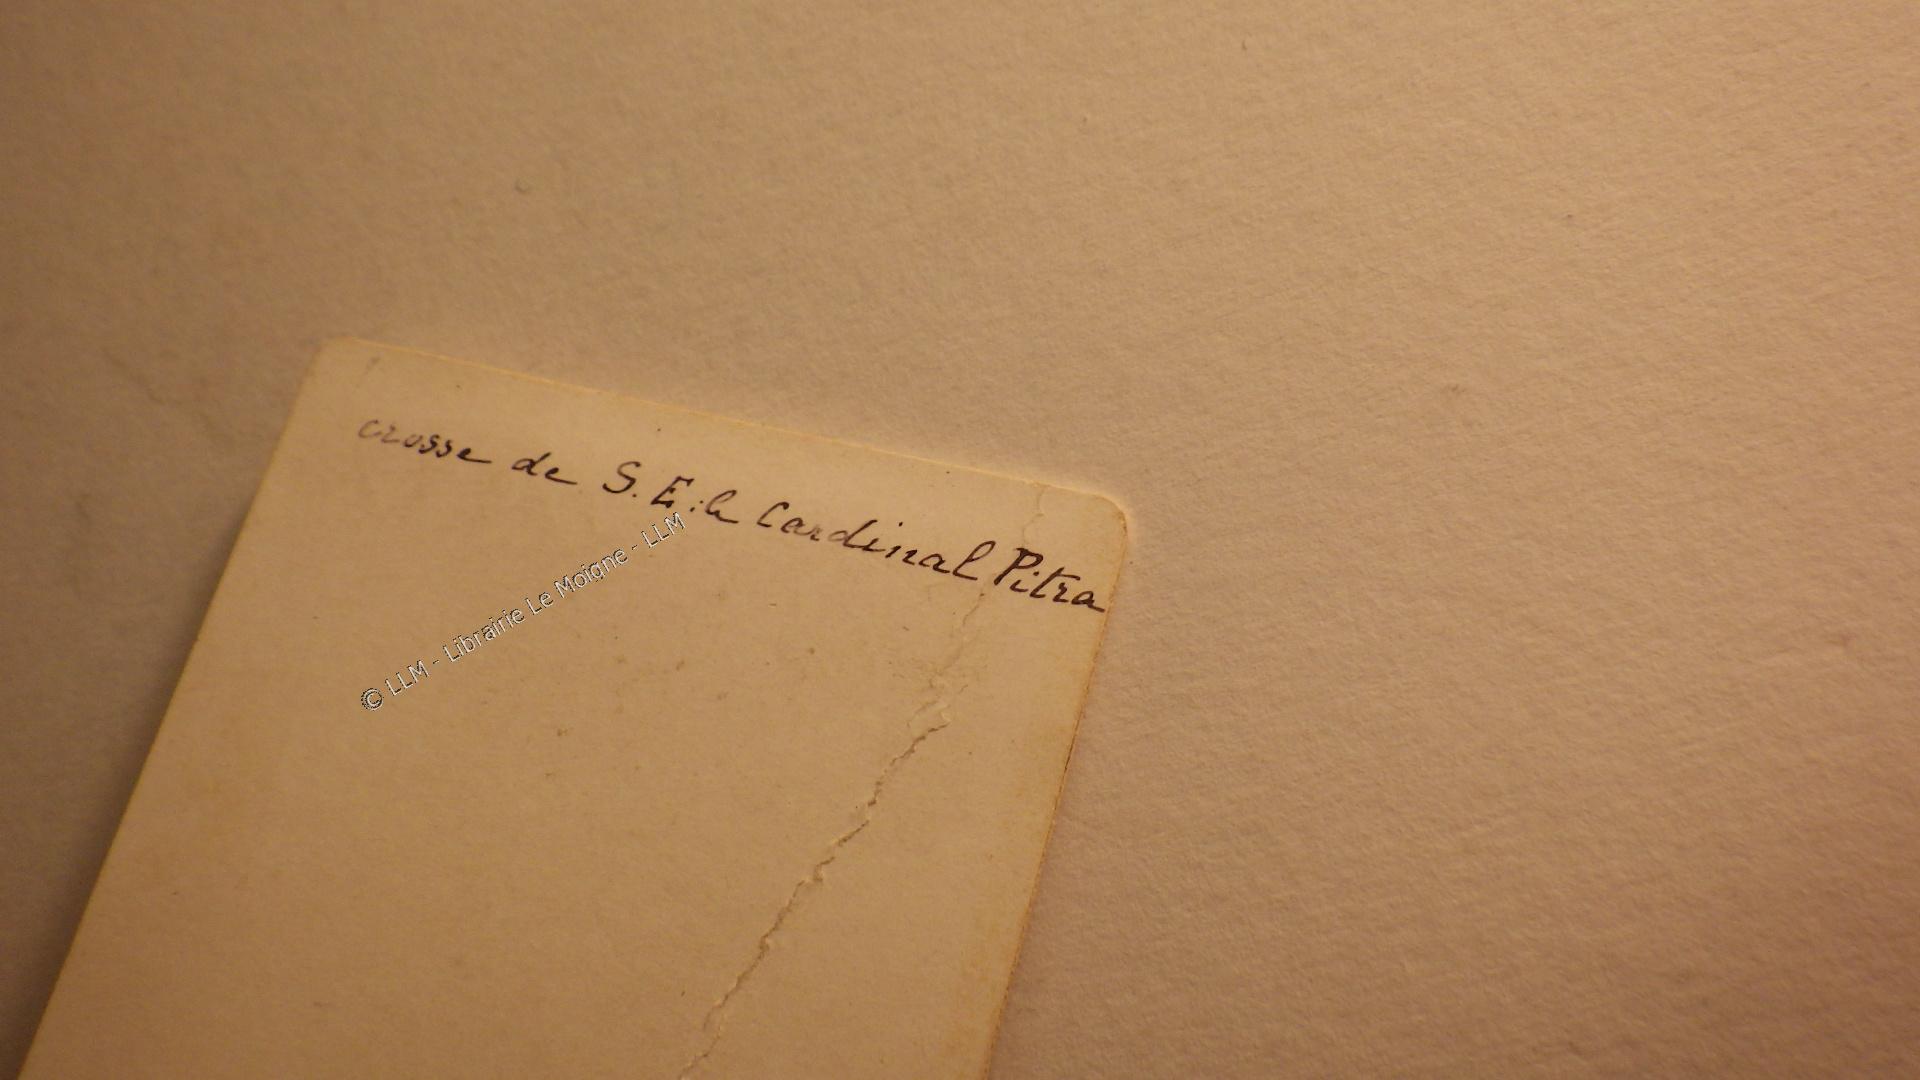 crosse de S. E. le Cardinal Pitra
© LLM - Librairie Le Moigne - LLM